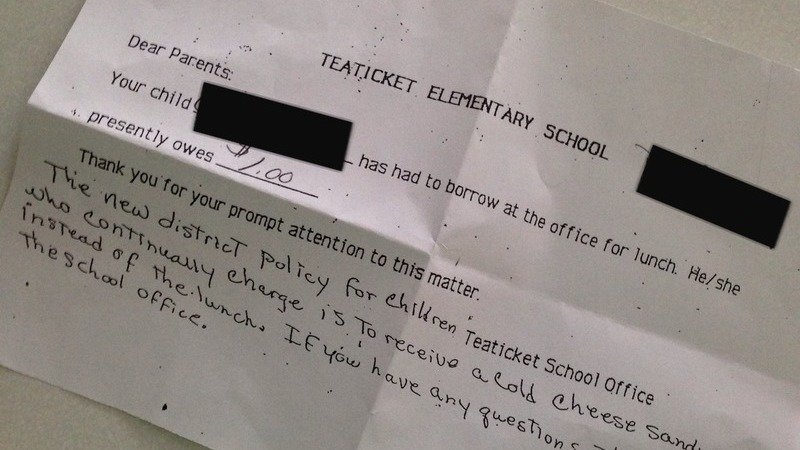 TEATICKET ELEMENTARY SCHOOL
Dear Parents:
Your child has had to borrow at the office for lunch. He/she
presently owes $1.00
Thank you for your prompt attention to this matter.
Teaticket School Office
The new district policy for children
who continually charge is to receive a cold cheese
instead of the lunch. If you have any questions
the school office.